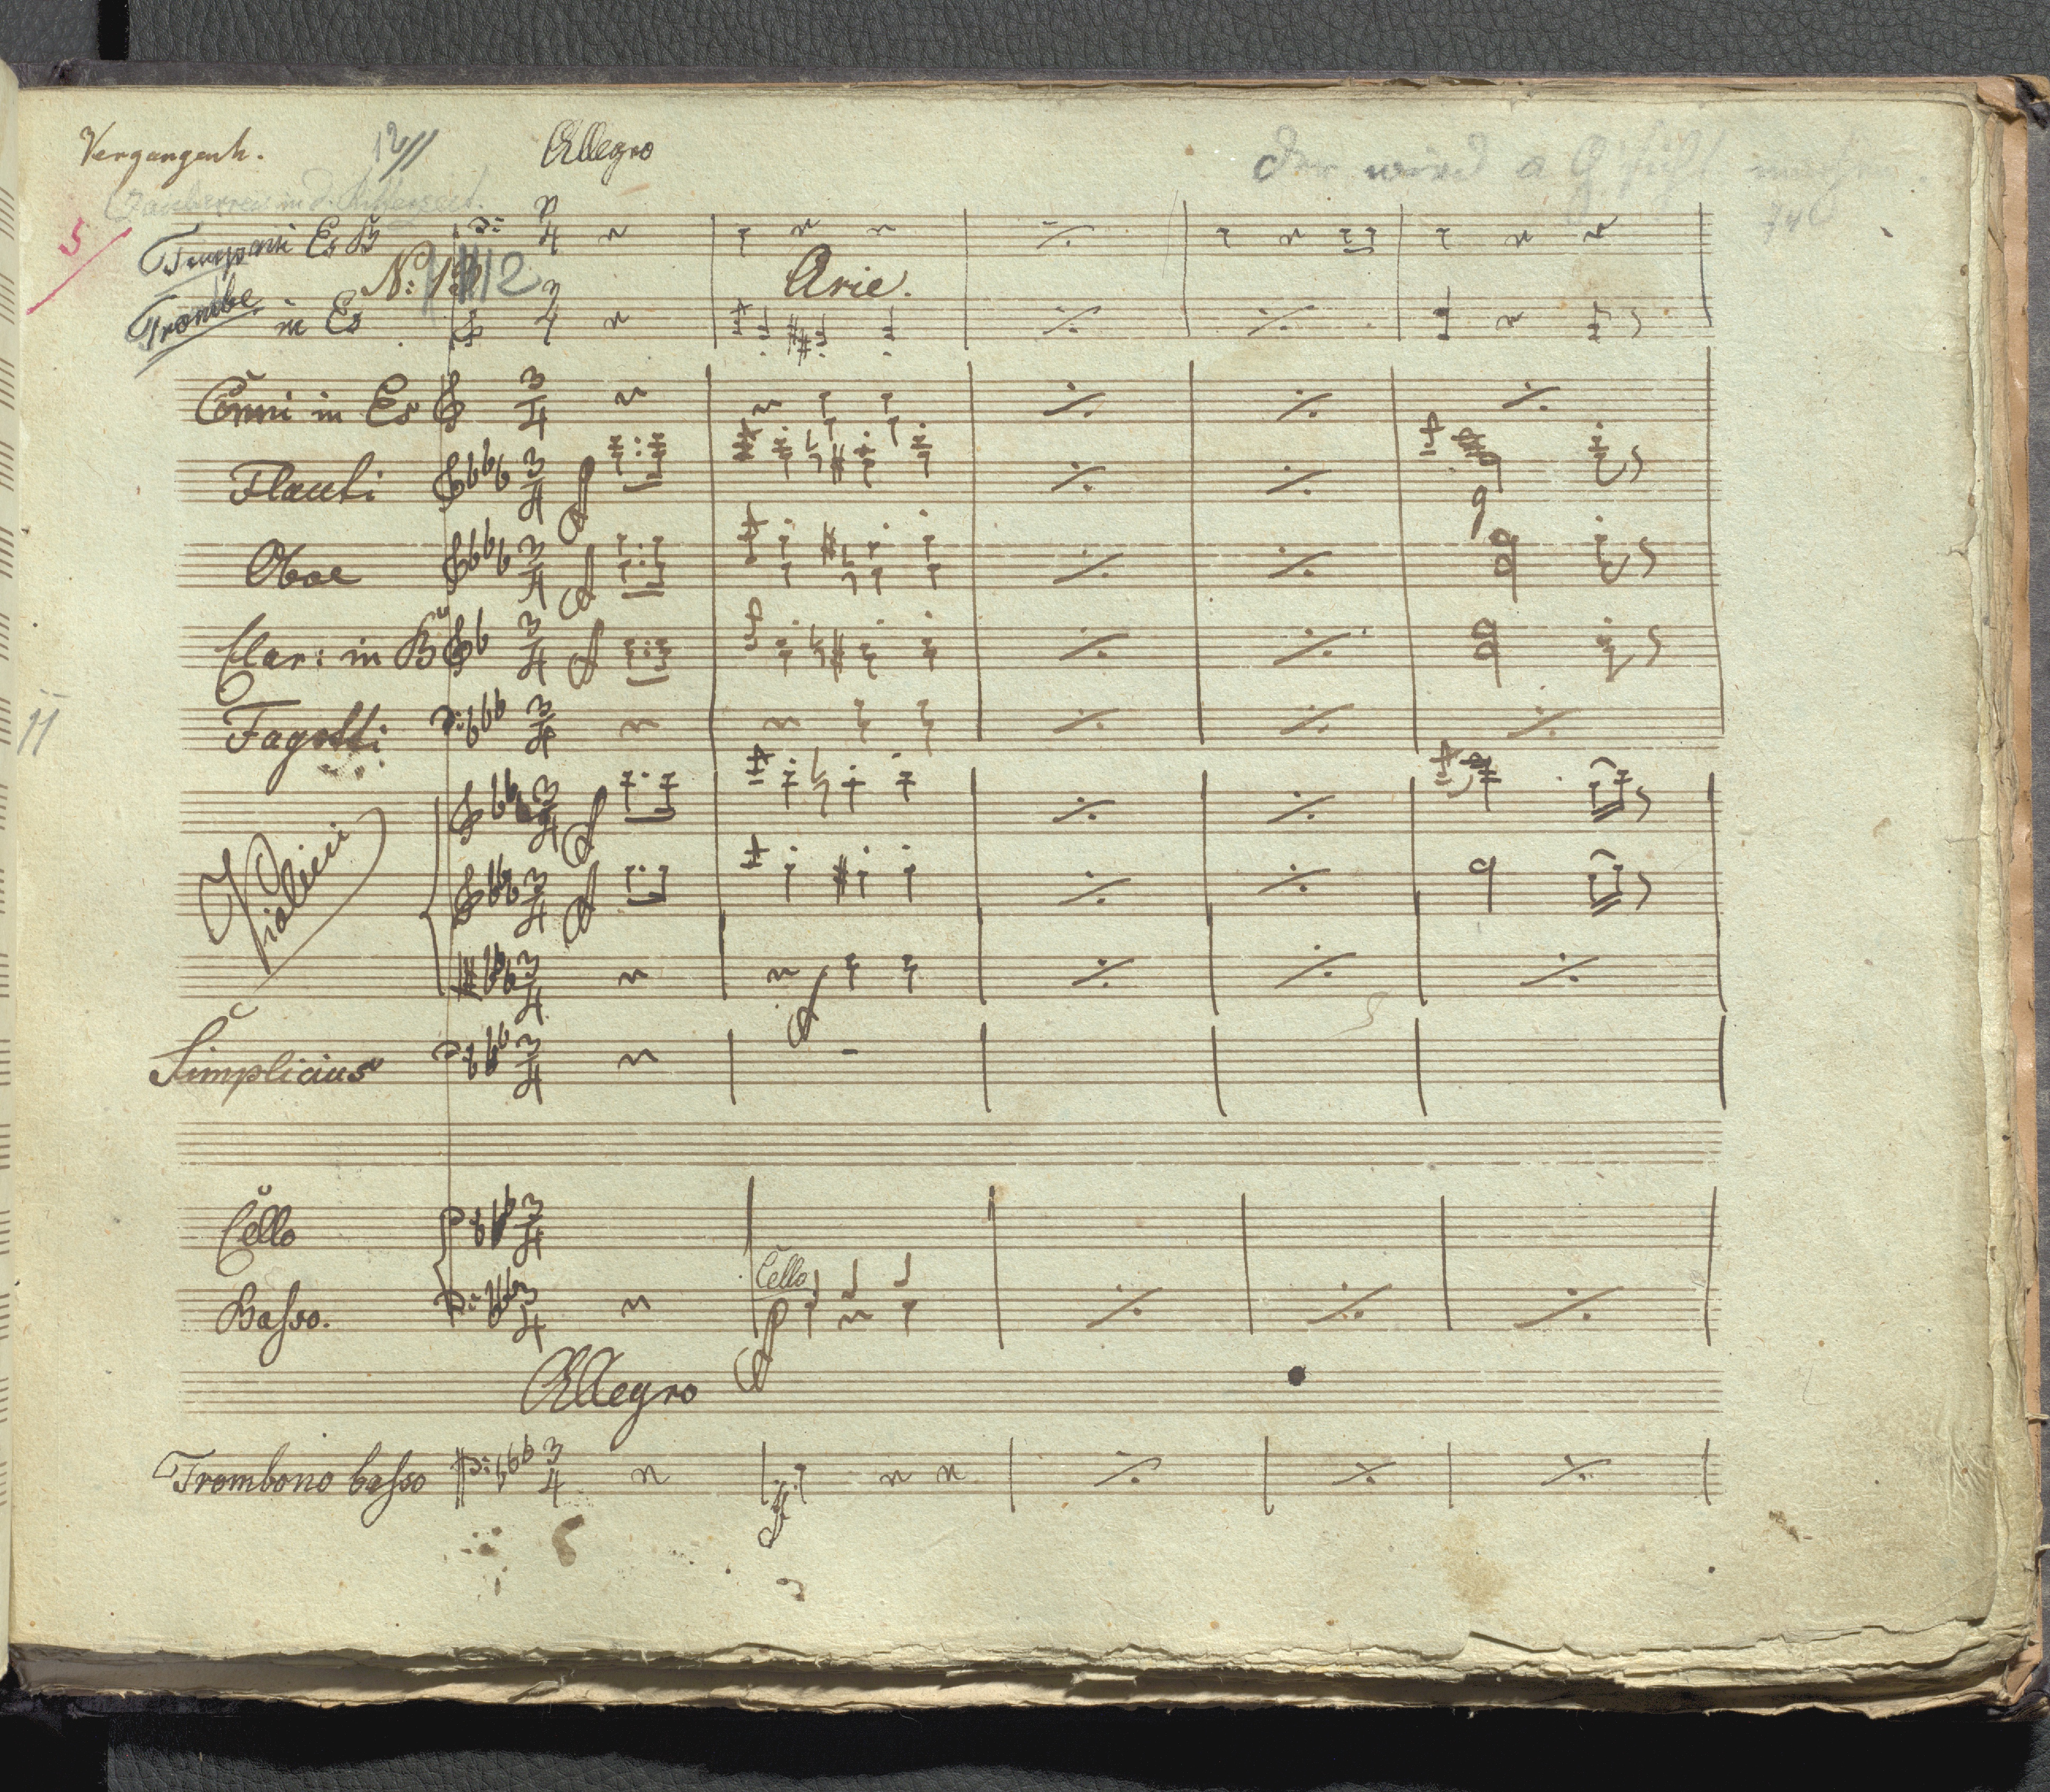 Vergangenh. 12 Allegro
Der wird a Gsicht machen.
Zauberreis in d. Ritterzeit.
5
Timpani Es B
No: 12 Arie.
Trombe in Es
Corni in Es
Flauti
Oboe
Clar: in B
Fagotti
11
Violini
Simplicius
Cello
Cello
Basso.
Allegro
Trombono basso